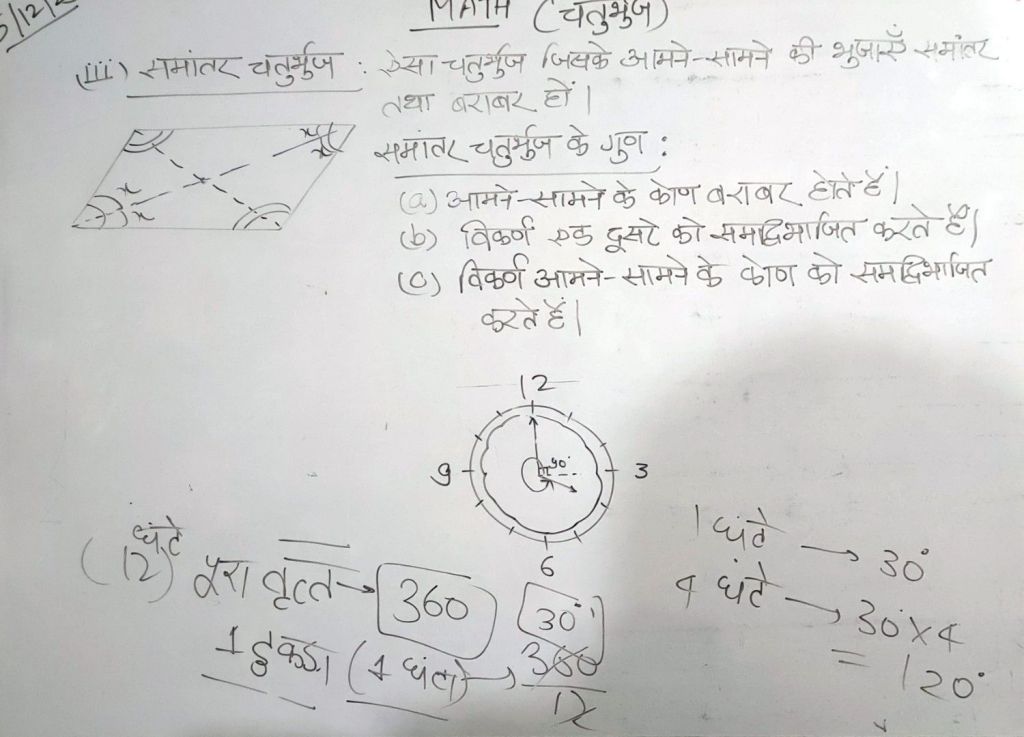 5/12/2
MATH (चतुर्भुज)
(iii) समांतर चतुर्भुज : ऐसा चतुर्भुज जिसके आमने-सामने की भुजाएँ समांतर
तथा बराबर हों।
समांतर चतुर्भुज के गुण :
(a) आमने-सामने के कोण बराबर होते हैं।
(b) विकर्ण एक दूसरे को समद्विभाजित करते हैं।
(c) विकर्ण आमने-सामने के कोण को समद्विभाजित
करते हैं।
x x
x
x
12
9 90° 3
6
(12 घंटे) पूरा वृत्त → 360
30°
1 टुकड़ा (1 घंटा) → 360/12
1 घंटे → 30°
4 घंटे → 30°×4
= 120°